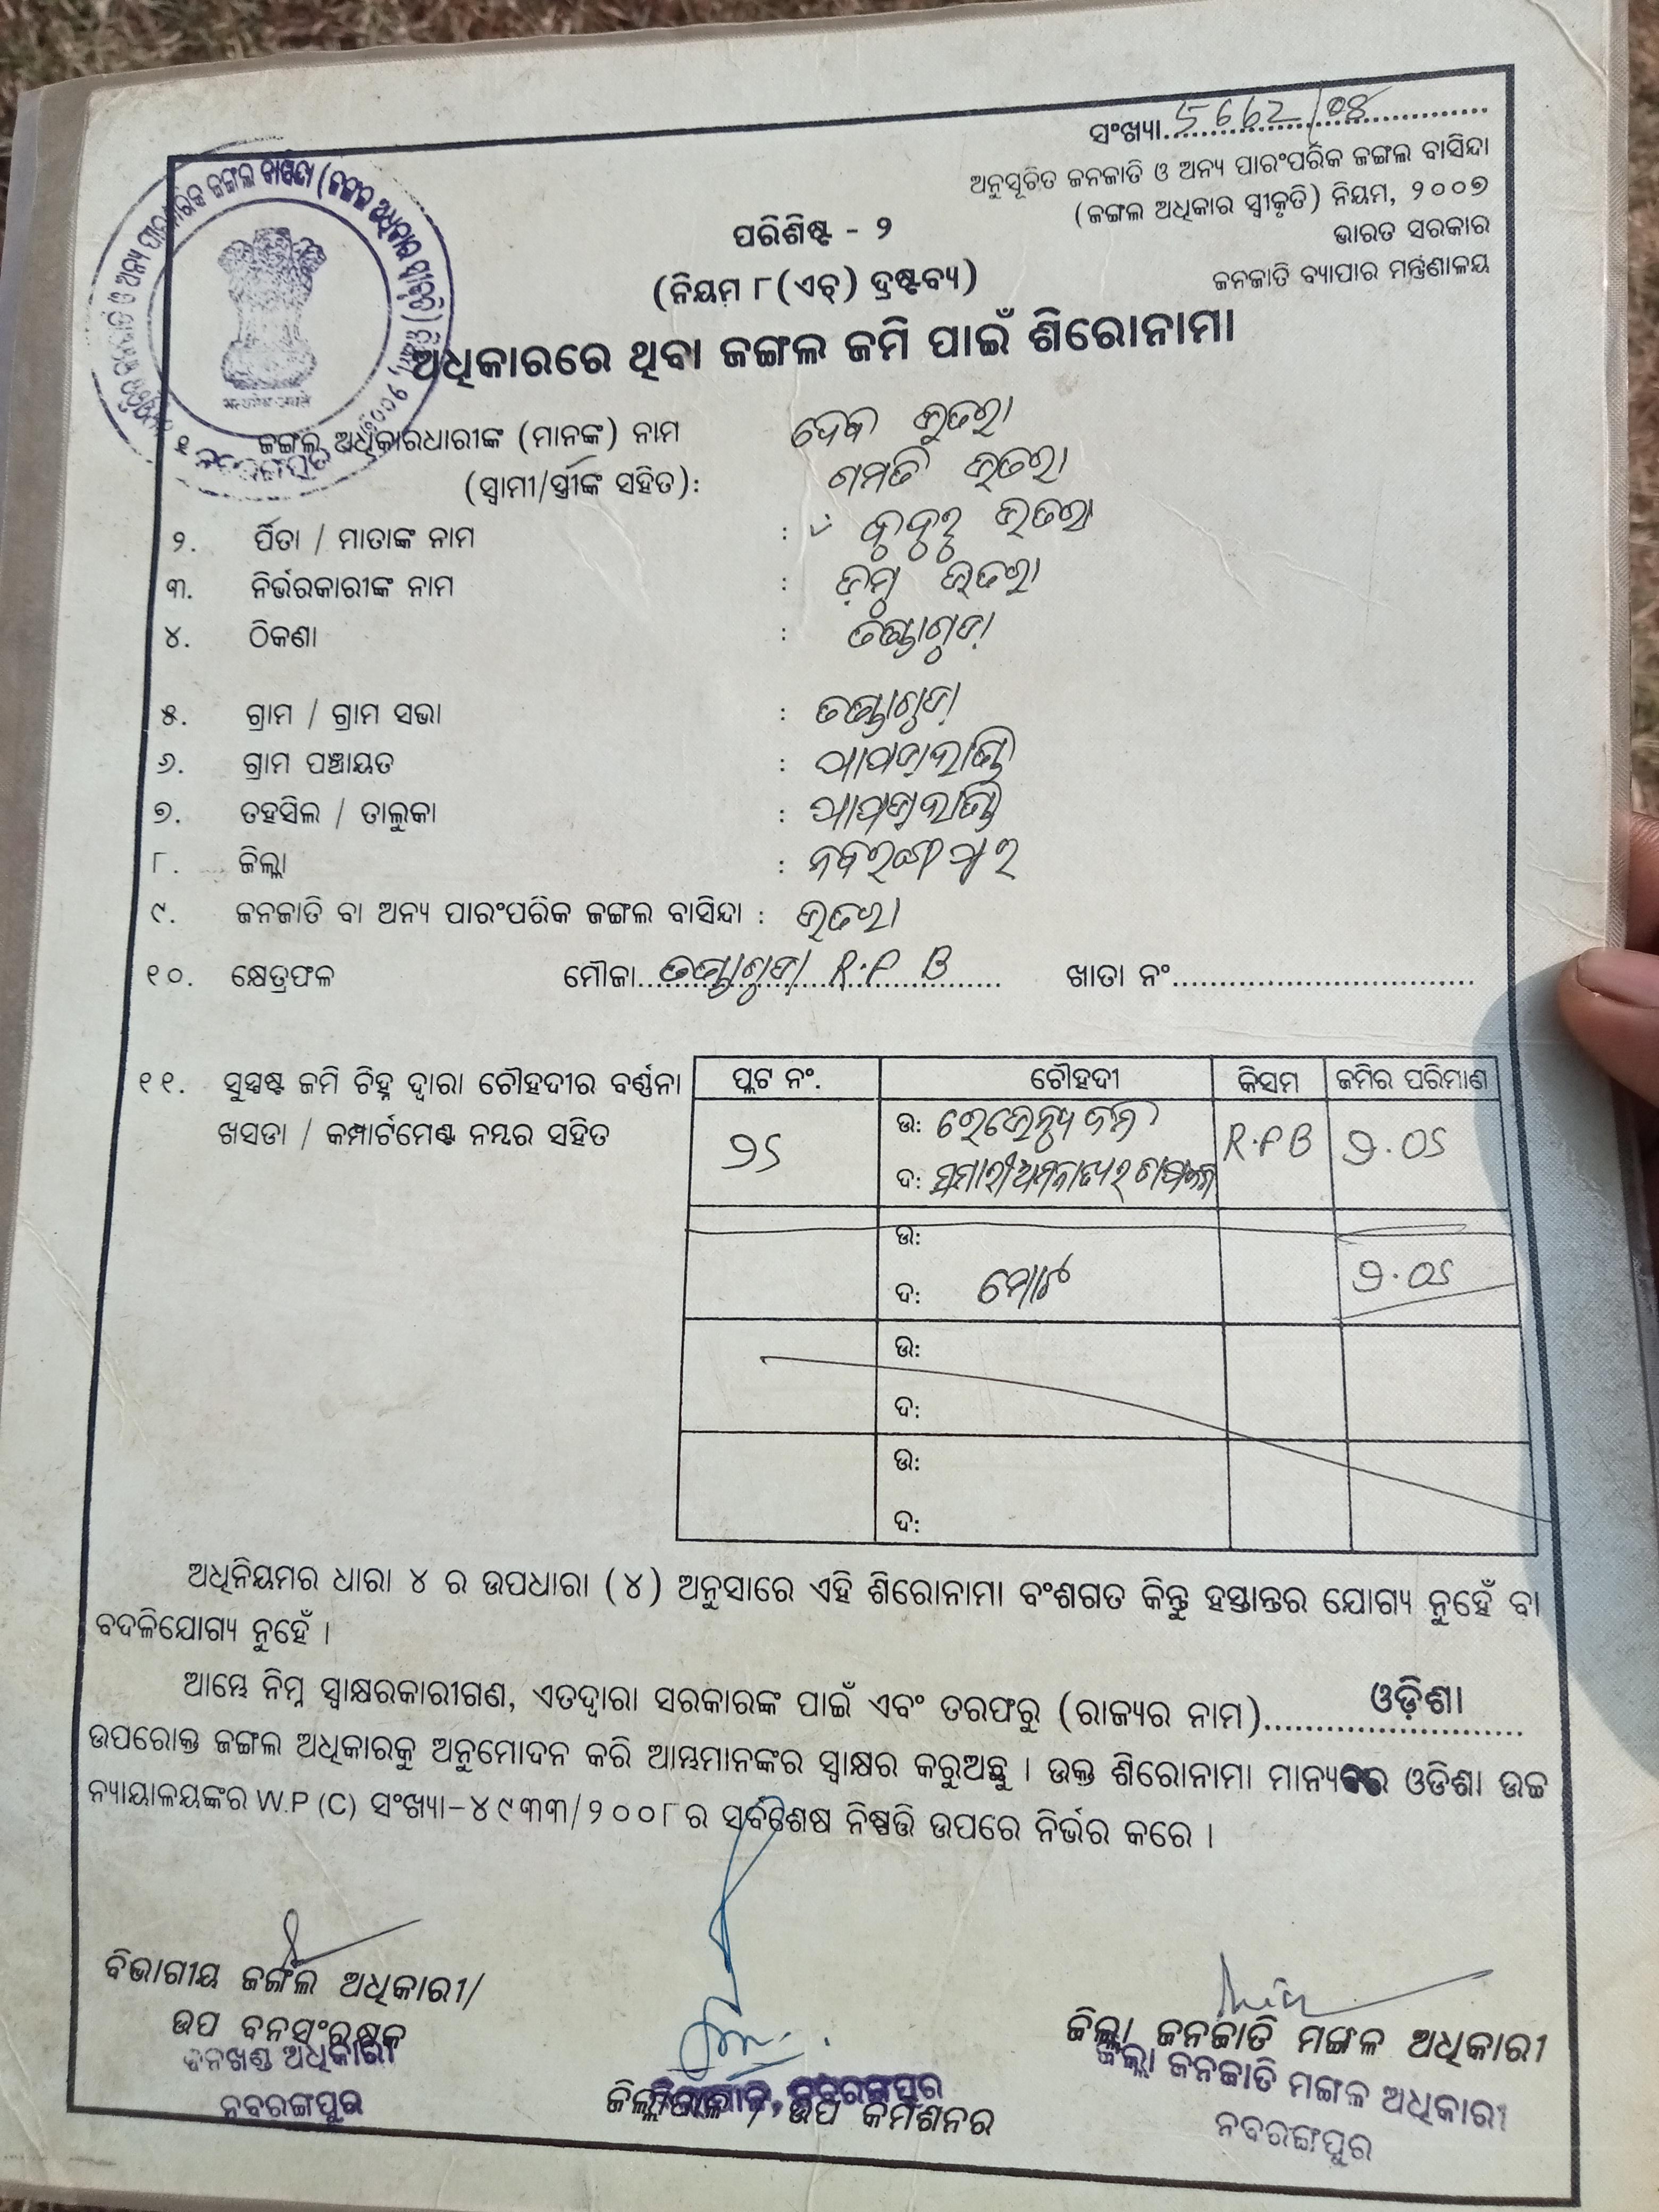 ସଂଖ୍ୟା
ଅନୁସୂଚିତ ଜନଜାତି ଓ ଅନ୍ୟ ପାରଂପରିକ ଜଙ୍ଗଲ ବାସିନ୍ଦା
(ଜଙ୍ଗଲ ଅଧିକାର ସ୍ୱୀକୃତି) ନିୟମ, ୨୦୦୭
ଭାରତ ସରକାର
ଜନଜାତି ବ୍ୟାପାର ମନ୍ତ୍ରଣାଳୟ
ପରିଶିଷ୍ଟ - ୨
(ନିୟମ ୮(ଏଚ୍) ଦ୍ରଷ୍ଟବ୍ୟ)
ଅଧିକାରରେ ଥିବା ଜଙ୍ଗଲ ଜମି ପାଇଁ ଶିରୋନାମା
୧. ଜଙ୍ଗଲ ଅଧିକାରଧାରୀଙ୍କ (ମାନଙ୍କ) ନାମ
(ସ୍ୱାମୀ/ସ୍ତ୍ରୀଙ୍କ ସହିତ):
୨. ପିତା / ମାତାଙ୍କ ନାମ :
୩. ନିର୍ଭରକାରୀଙ୍କ ନାମ :
୪. ଠିକଣା :
୫. ଗ୍ରାମ / ଗ୍ରାମ ସଭା :
୬. ଗ୍ରାମ ପଞ୍ଚାୟତ : ପାପଡାହାଣ୍ଡି
୭. ତହସିଲ / ତାଲୁକା : ପାପଡାହାଣ୍ଡି
୮. ଜିଲ୍ଲା : ନବରଙ୍ଗପୁର
୯. ଜନଜାତି ବା ଅନ୍ୟ ପାରଂପରିକ ଜଙ୍ଗଲ ବାସିନ୍ଦା : ଭତରା
୧୦. କ୍ଷେତ୍ରଫଳ ମୌଜା R.F B ଖାତା ନଂ
୧୧. ସୁସ୍ପଷ୍ଟ ଜମି ଚିହ୍ନ ଦ୍ୱାରା ଚୌହଦୀର ବର୍ଣ୍ଣନା
ଖସଡା / କମ୍ପାର୍ଟମେଣ୍ଟ ନମ୍ବର ସହିତ
ପ୍ଲଟ ନଂ. ଚୌହଦୀ କିସମ ଜମିର ପରିମାଣ
ଉ: R.F B
ଦ:
ଉ:
ଦ: ମୋଟ
ଉ:
ଦ:
ଉ:
ଦ:
ଅଧିନିୟମର ଧାରା ୪ ର ଉପଧାରା (୪) ଅନୁସାରେ ଏହି ଶିରୋନାମା ବଂଶଗତ କିନ୍ତୁ ହସ୍ତାନ୍ତର ଯୋଗ୍ୟ ନୁହେଁ ବା
ବଦଳିଯୋଗ୍ୟ ନୁହେଁ ।
ଆମ୍ଭେ ନିମ୍ନ ସ୍ୱାକ୍ଷରକାରୀଗଣ, ଏତଦ୍ଦ୍ୱାରା ସରକାରଙ୍କ ପାଇଁ ଏବଂ ତରଫରୁ (ରାଜ୍ୟର ନାମ) ଓଡ଼ିଶା
ଉପରୋକ୍ତ ଜଙ୍ଗଲ ଅଧିକାରକୁ ଅନୁମୋଦନ କରି ଆମ୍ଭମାନଙ୍କର ସ୍ୱାକ୍ଷର କରୁଅଛୁ । ଉକ୍ତ ଶିରୋନାମା ମାନ୍ୟବର ଓଡିଶା ଉଚ୍ଚ
ନ୍ୟାୟାଳୟଙ୍କର W.P (C) ସଂଖ୍ୟା-୪୯୩୩/୨୦୦୮ର ସର୍ବଶେଷ ନିଷ୍ପତ୍ତି ଉପରେ ନିର୍ଭର କରେ ।
ବିଭାଗୀୟ ଜଙ୍ଗଲ ଅଧିକାରୀ/
ଉପ ବନସଂରକ୍ଷକ
ବନଖଣ୍ଡ ଅଧିକାରୀ
ନବରଙ୍ଗପୁର
ଜିଲ୍ଲାପାଳ, ନବରଙ୍ଗପୁର
ଜିଲ୍ଲାପାଳ / ଉପ କମିଶନର
ଜିଲ୍ଲା ଜନଜାତି ମଙ୍ଗଳ ଅଧିକାରୀ
ଜିଲ୍ଲା ଜନଜାତି ମଙ୍ଗଳ ଅଧିକାରୀ
ନବରଙ୍ଗପୁର